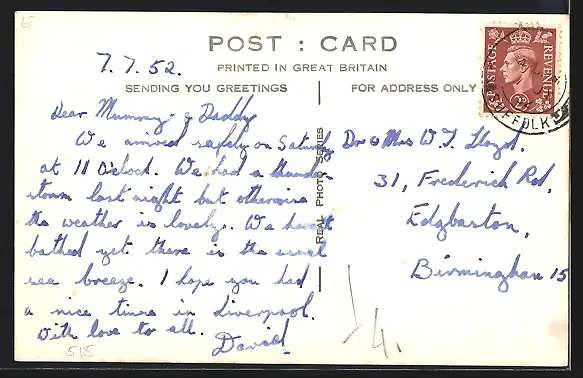 POST : CARD
PRINTED IN GREAT BRITAIN
SENDING YOU GREETINGS
FOR ADDRESS ONLY
7.7.52.
Dear Mummy & Daddy
We arrived safely on Saturday
at 11 O'clock. We had a thunder
storm last night but otherwise
the weather is lovely. We haven't
bathed yet there is the usual
sea breeze. I hope you had
a nice time in Liverpool.
With love to all.
David
515
REAL PHOTO SERIES
Dr & Mrs W. J. Lloyd.
31, Frederick Rd,
Edgbaston,
Birmingham 15
14.
POSTAGE
REVENUE
FFOLK